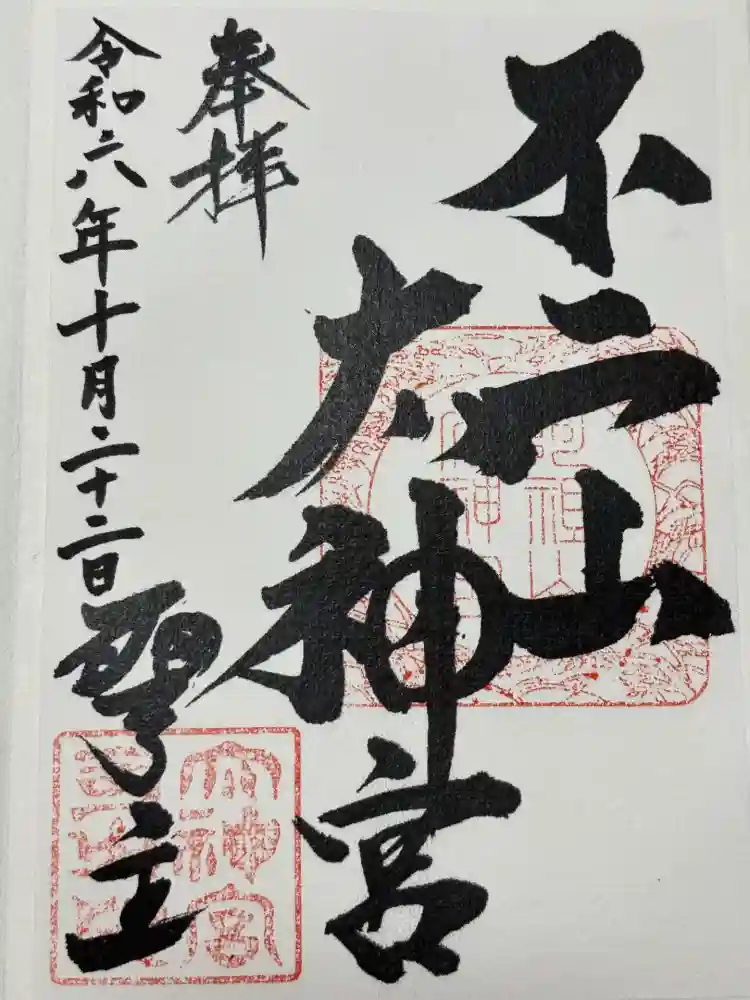 不二山
大神宮
奉拝
令和六年十月二十二日